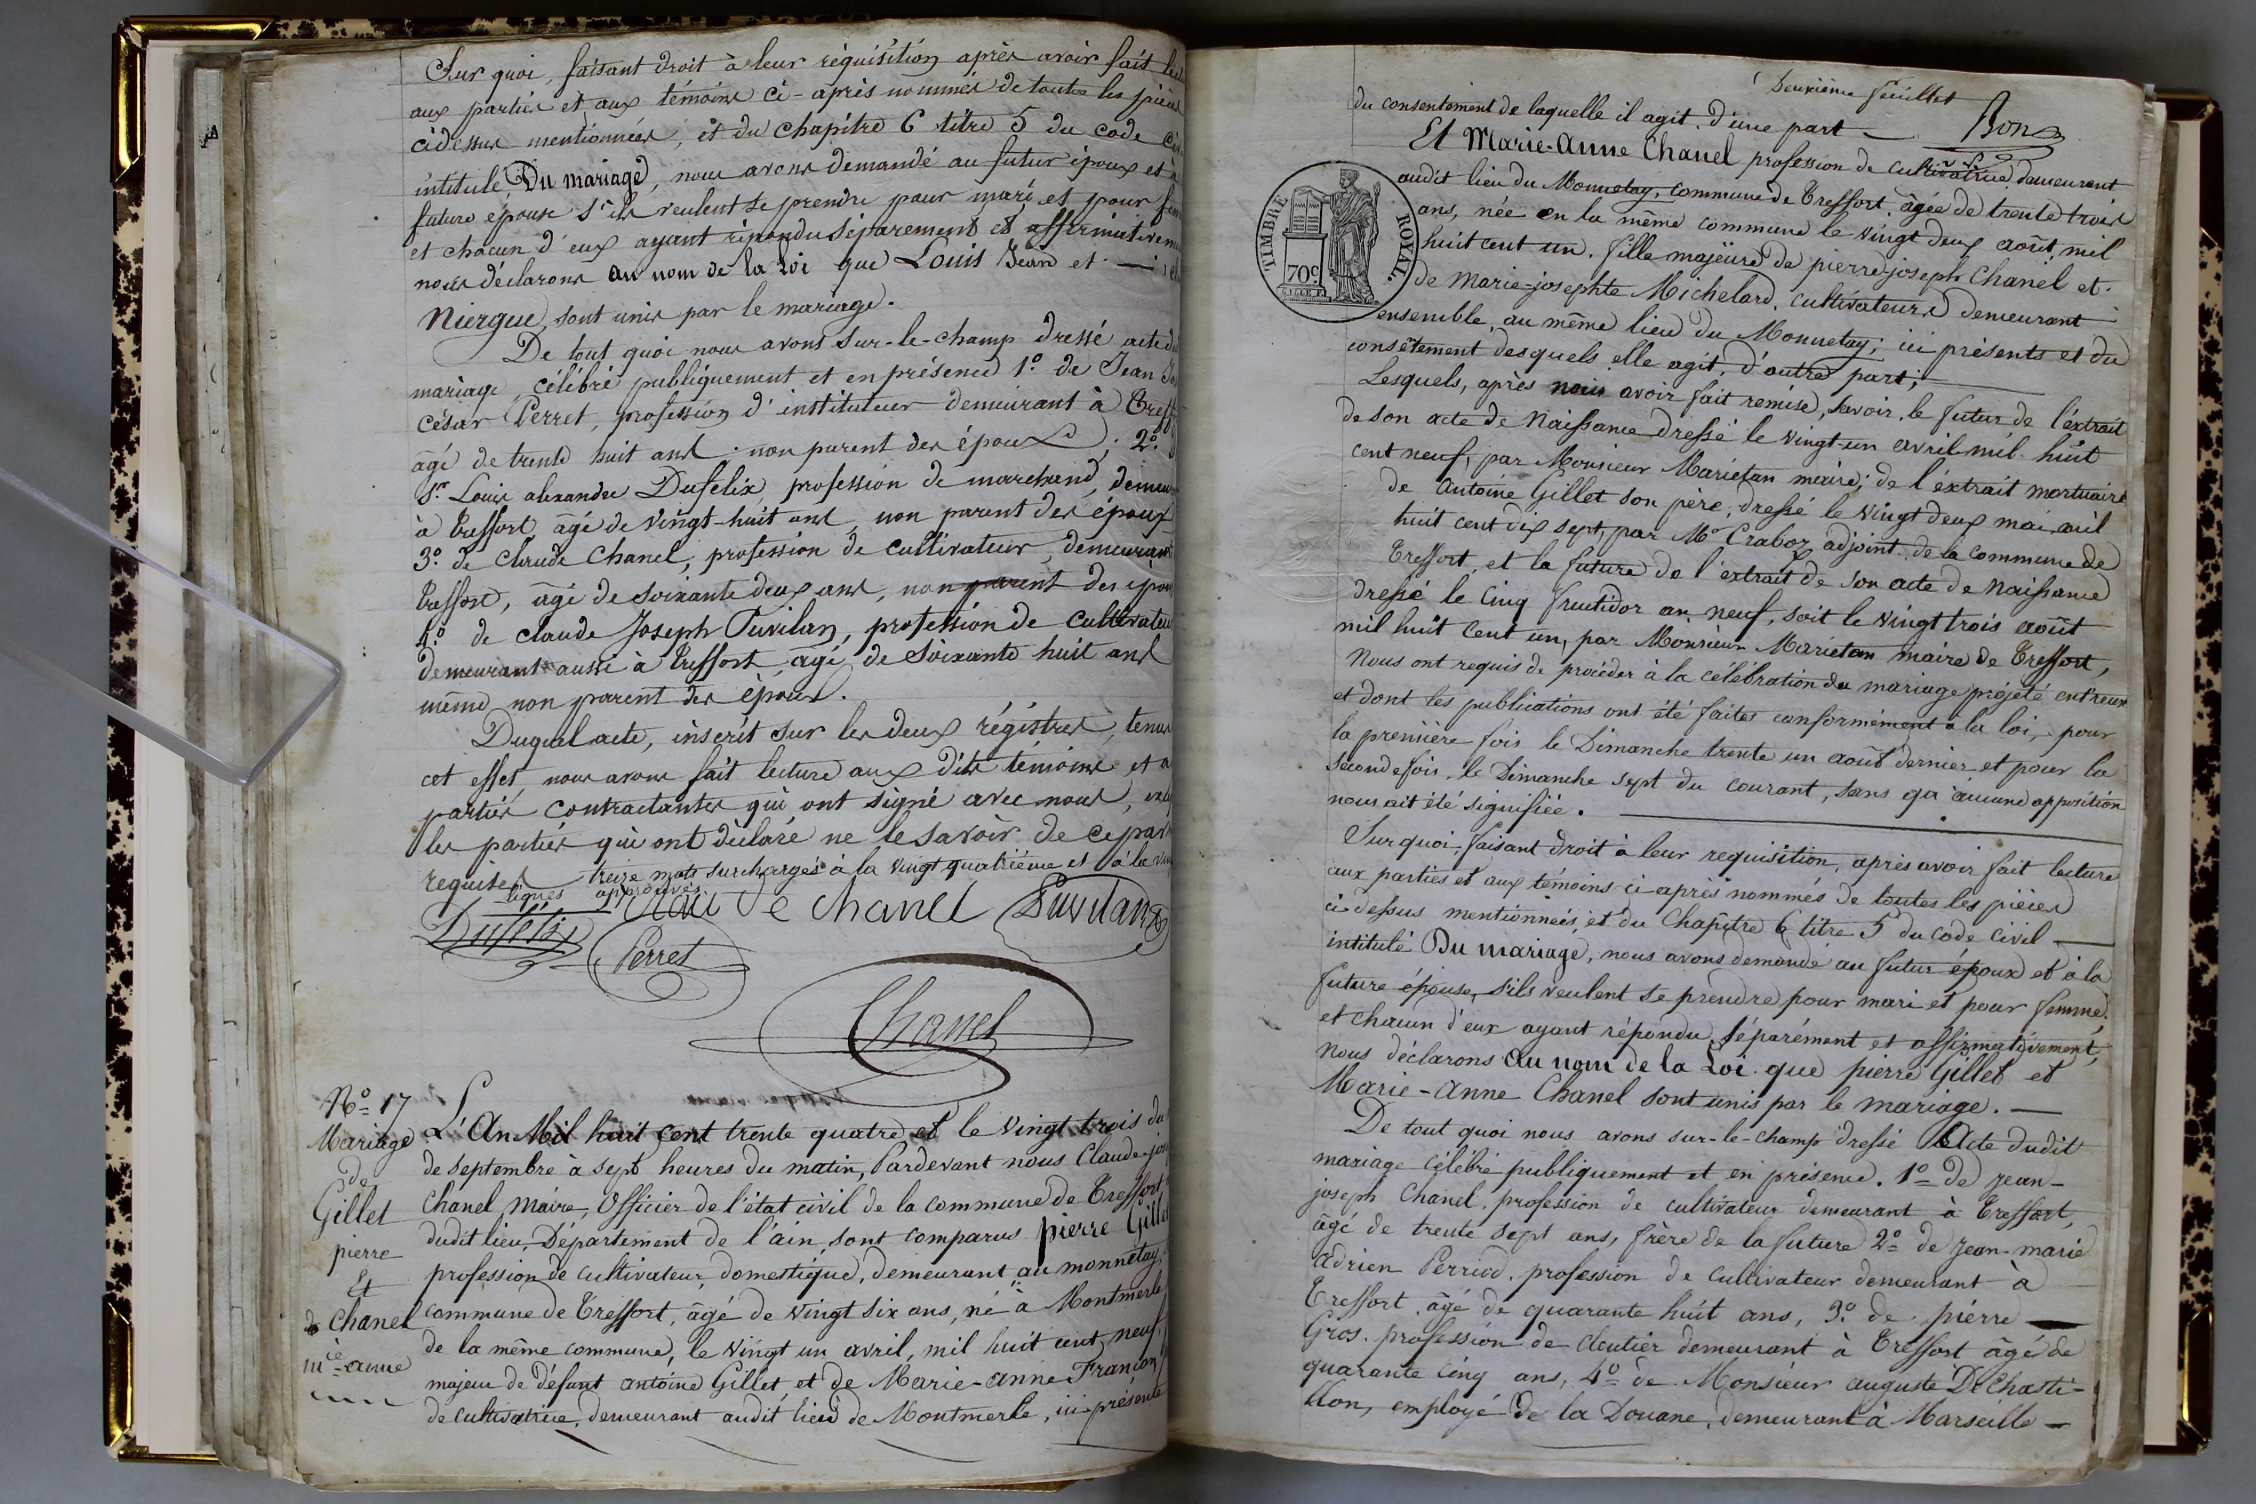 Sur quoi, faisant droit à leur réquisition après avoir fait
aux parties et aux témoins ci-après nommés de toutes les pièces
ci dessus mentionnées, et du chapitre 6 titre 5 du code
intitulé, Du mariage, nous avons demandé au futur époux et à
future épouse s'ils veulent se prendre pour mari et pour
et chacun d'eux ayant répondu séparément et
nous déclarons au nom de la Loi que Louis Jean et
Niergue, sont unis par le mariage.
De tout quoi nous avons sur-le-champ dressé acte
mariage, célébré publiquement et en présence 1.º de Jean
césar Perret, profession d'instituteur demeurant à
âgé de trente huit ans, non parent des époux, 2.º
Sr. Louis alexandre Dufelix, profession de marchand,
à treffort, âgé de vingt-huit ans, non parent des époux
3.º de claude Chanel, profession de cultivateur, demeurant
treffort, âgé de soixante deux ans, non parent des
4.º de claude Joseph Puvilan, profession de
demeurant aussi à treffort, âgé de soixante huit ans
même non parent des époux.
Duquel acte, inscrit sur les deux régistres, tenus
cet effet, nous avons fait lecture aux dits témoins et
parties contractantes qui ont signé avec nous,
les parties qui ont déclaré ne le savoir de ce
requises treize mots surchargés à la vingt quatrième et à la
lignes approuvés
C Chanel Puvilan
Dufelix
Perret
Chanel
Nº 17
Mariage
de
Gillet
pierre
Et
de Chanel
mie anne
L'An Mil huit cent trente quatre et le vingt trois du
de septembre à sept heures du matin, Pardevant nous Claude
Chanel Maire, Officier de l'état civil de la commune de Treffort
dudit lieu, Département de l'ain, sont comparus pierre Gillet
profession de cultivateur domestique, demeurant au monnetay,
commune de Treffort, âgé de vingt six ans, né à Montmerle
de la même commune, le vingt un avril, mil huit cent neuf,
majeur de défunt antoine Gillet, et de Marie-anne Françon
de cultivatrice, demeurant audit lieu de Montmerle, ici présente
Deuxième feuillet
Bon
du consentement de laquelle il agit, d'une part
Et Marie-Anne Chanel profession de cultivatrice, demeurant
audit lieu du Monnetay, commune de Treffort, âgée de trente trois
ans, née en la même commune le vingt deux août, mil
huit cent un, fille majeure de pierre-joseph Chanel et
de Marie-josephte Michelard, cultivateurs, demeurant
ensemble, au même lieu du Monnetay, ici présents et du
consêtement desquels elle agit, d'autre part;
Lesquels, après nous avoir fait remise, savoir, le futur de l'extrait
de son acte de Naissance dressé le vingt-un avril mil huit
cent neuf, par Monsieur Marietan maire; de l'extrait mortuaire
de Antoine Gillet son père, dressé le vingt deux mai, mil
huit cent dix sept, par Mr Craboz adjoint de la commune de
Treffort, et la future de l'extrait de son acte de Naissance
dressé le cinq fructidor an neuf, soit le vingt trois août
mil huit cent un, par Monsieur Marietan maire de Treffort,
Nous ont requis de procéder à la célébration du mariage projeté entr'eux
et dont les publications ont été faites conformément à la loi, pour
la première fois le Dimanche trente un août dernier et pour la
seconde fois, le Dimanche sept du courant, sans qu'aucune opposition
nous ait été signifiée.
Sur quoi, faisant droit à leur requisition, après avoir fait lecture
aux parties et aux témoins ci-après nommés de toutes les pièces
ci-dessus mentionnées, et du chapitre 6 titre 5 du code civil
intitulé Du mariage, nous avons demandé au futur époux et à la
future épouse, s'ils veulent se prendre pour mari et pour femme,
et chacun d'eux ayant répondu séparément et affirmativement,
Nous déclarons au nom de la Loi que pierre Gillet et
Marie-Anne Chanel sont unis par le mariage.
De tout quoi nous avons sur-le-champ dressé Acte dudit
mariage célébré publiquement et en présence. 1º de jean-
joseph Chanel, profession de cultivateur demeurant à Treffort,
âgé de trente sept ans, frère de la future 2º de jean-marie
adrien Perriod, profession de cultivateur demeurant à
Treffort, âgé de quarante huit ans, 3º de pierre
Gros, profession de cloutier demeurant à Treffort âgé de
quarante cinq ans, 4º de Monsieur auguste De Chasti-
llon, employé de la Douane, demeurant à Marseille
TIMBRE ROYAL.
70c